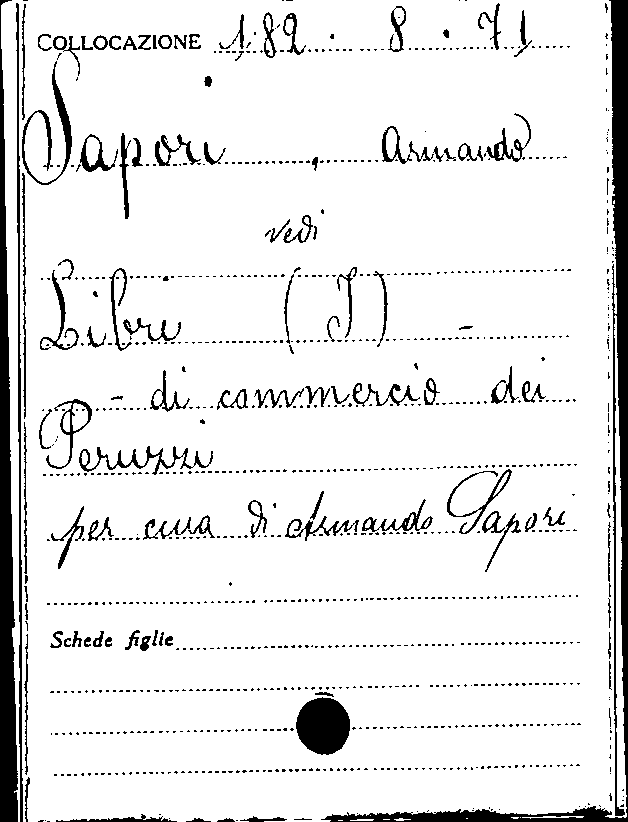 COLLOCAZIONE 182 . 8 . 71
Sapori , Armando
vedi
Libri (I) -
- di commercio dei
Peruzzi
per cura di Armando Sapori
Schede figlie